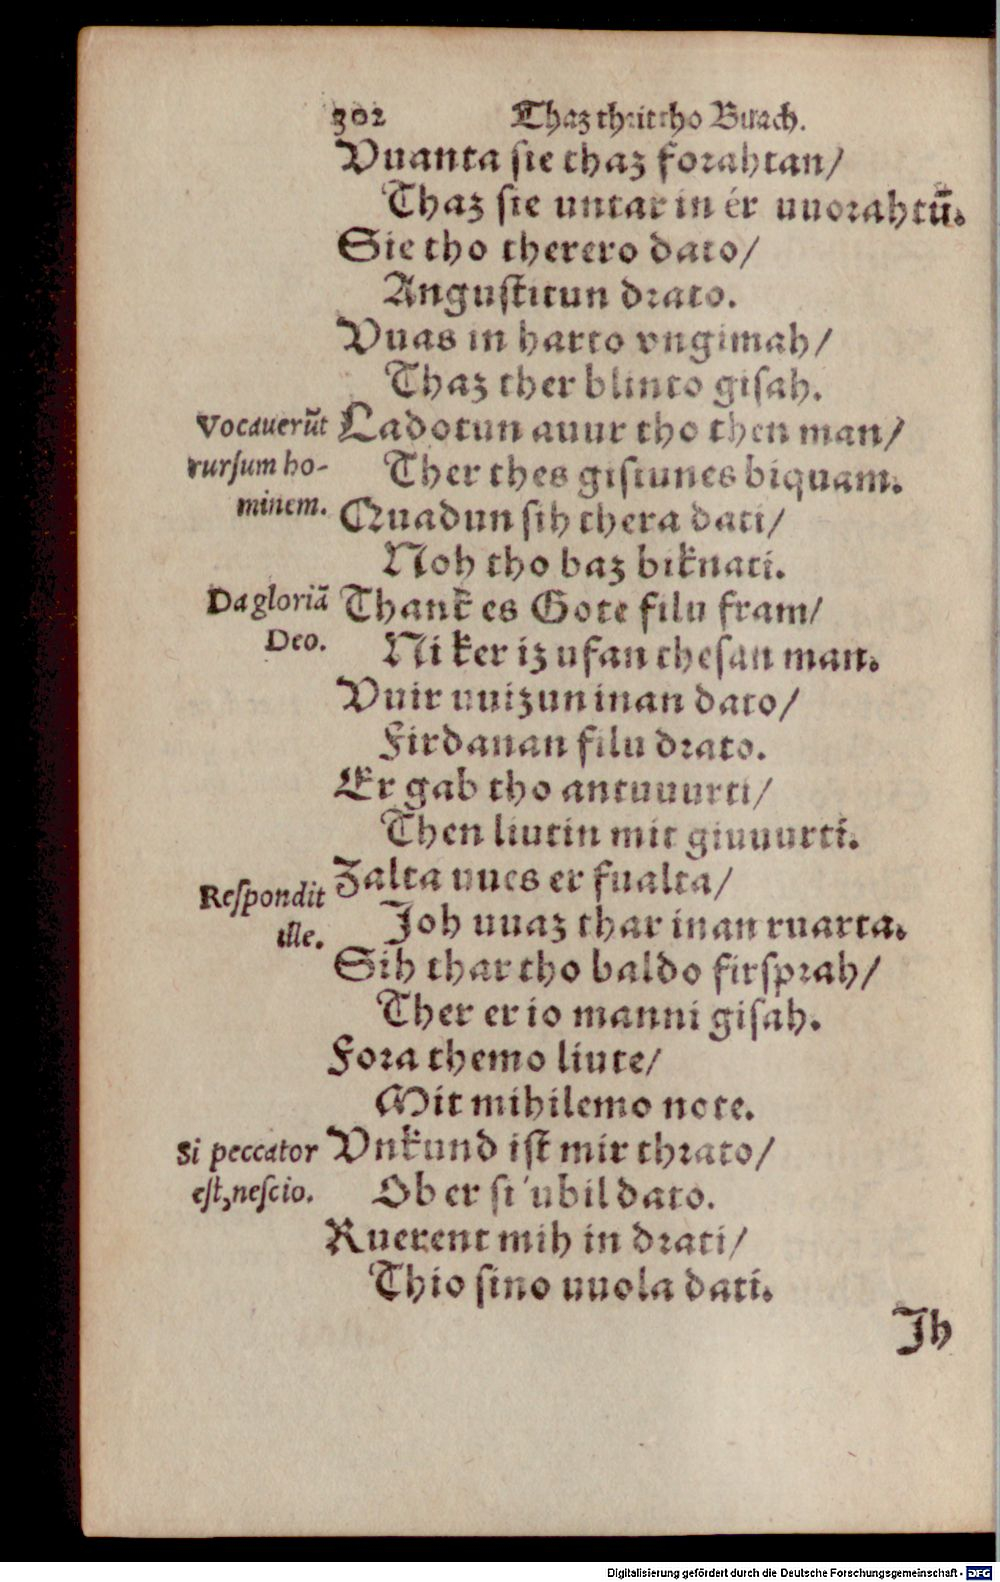 302 Thaz thrittho Buach.
Vuanta sie thaz forahtan/
Thaz sie untar in ér uuorahtū.
Sie tho therero dato/
Angustitun drato.
Vuas in harto vngimah/
Thaz ther blinto gisah.
Vocauerūt
rursum ho-
minem.
Ladotun auur tho then man/
Ther thes gistunes biquam.
Quadun sih thera dati/
Noh tho baz biknati.
Da gloriā
Deo.
Thank es Gote filu fram/
Ni ker iz ufan thesan man.
Vuir uuizun inan dato/
Firdanan filu drato.
Er gab tho antuuurti/
Then liutin mit giuuurti.
Respondit
ille.
Zalta uues er fualta/
Joh uuaz thar inan ruarta.
Sih thar tho baldo firsprah/
Ther er io manni gisah.
Fora themo liute/
Mit mihilemo note.
Si peccator
est, nescio.
Vnkund ist mir thrato/
Ob er si ubil dato.
Ruerent mih in drati/
Thio sino uuola dati.
Jh
Digitalisierung gefördert durch die Deutsche Forschungsgemeinschaft - DFG